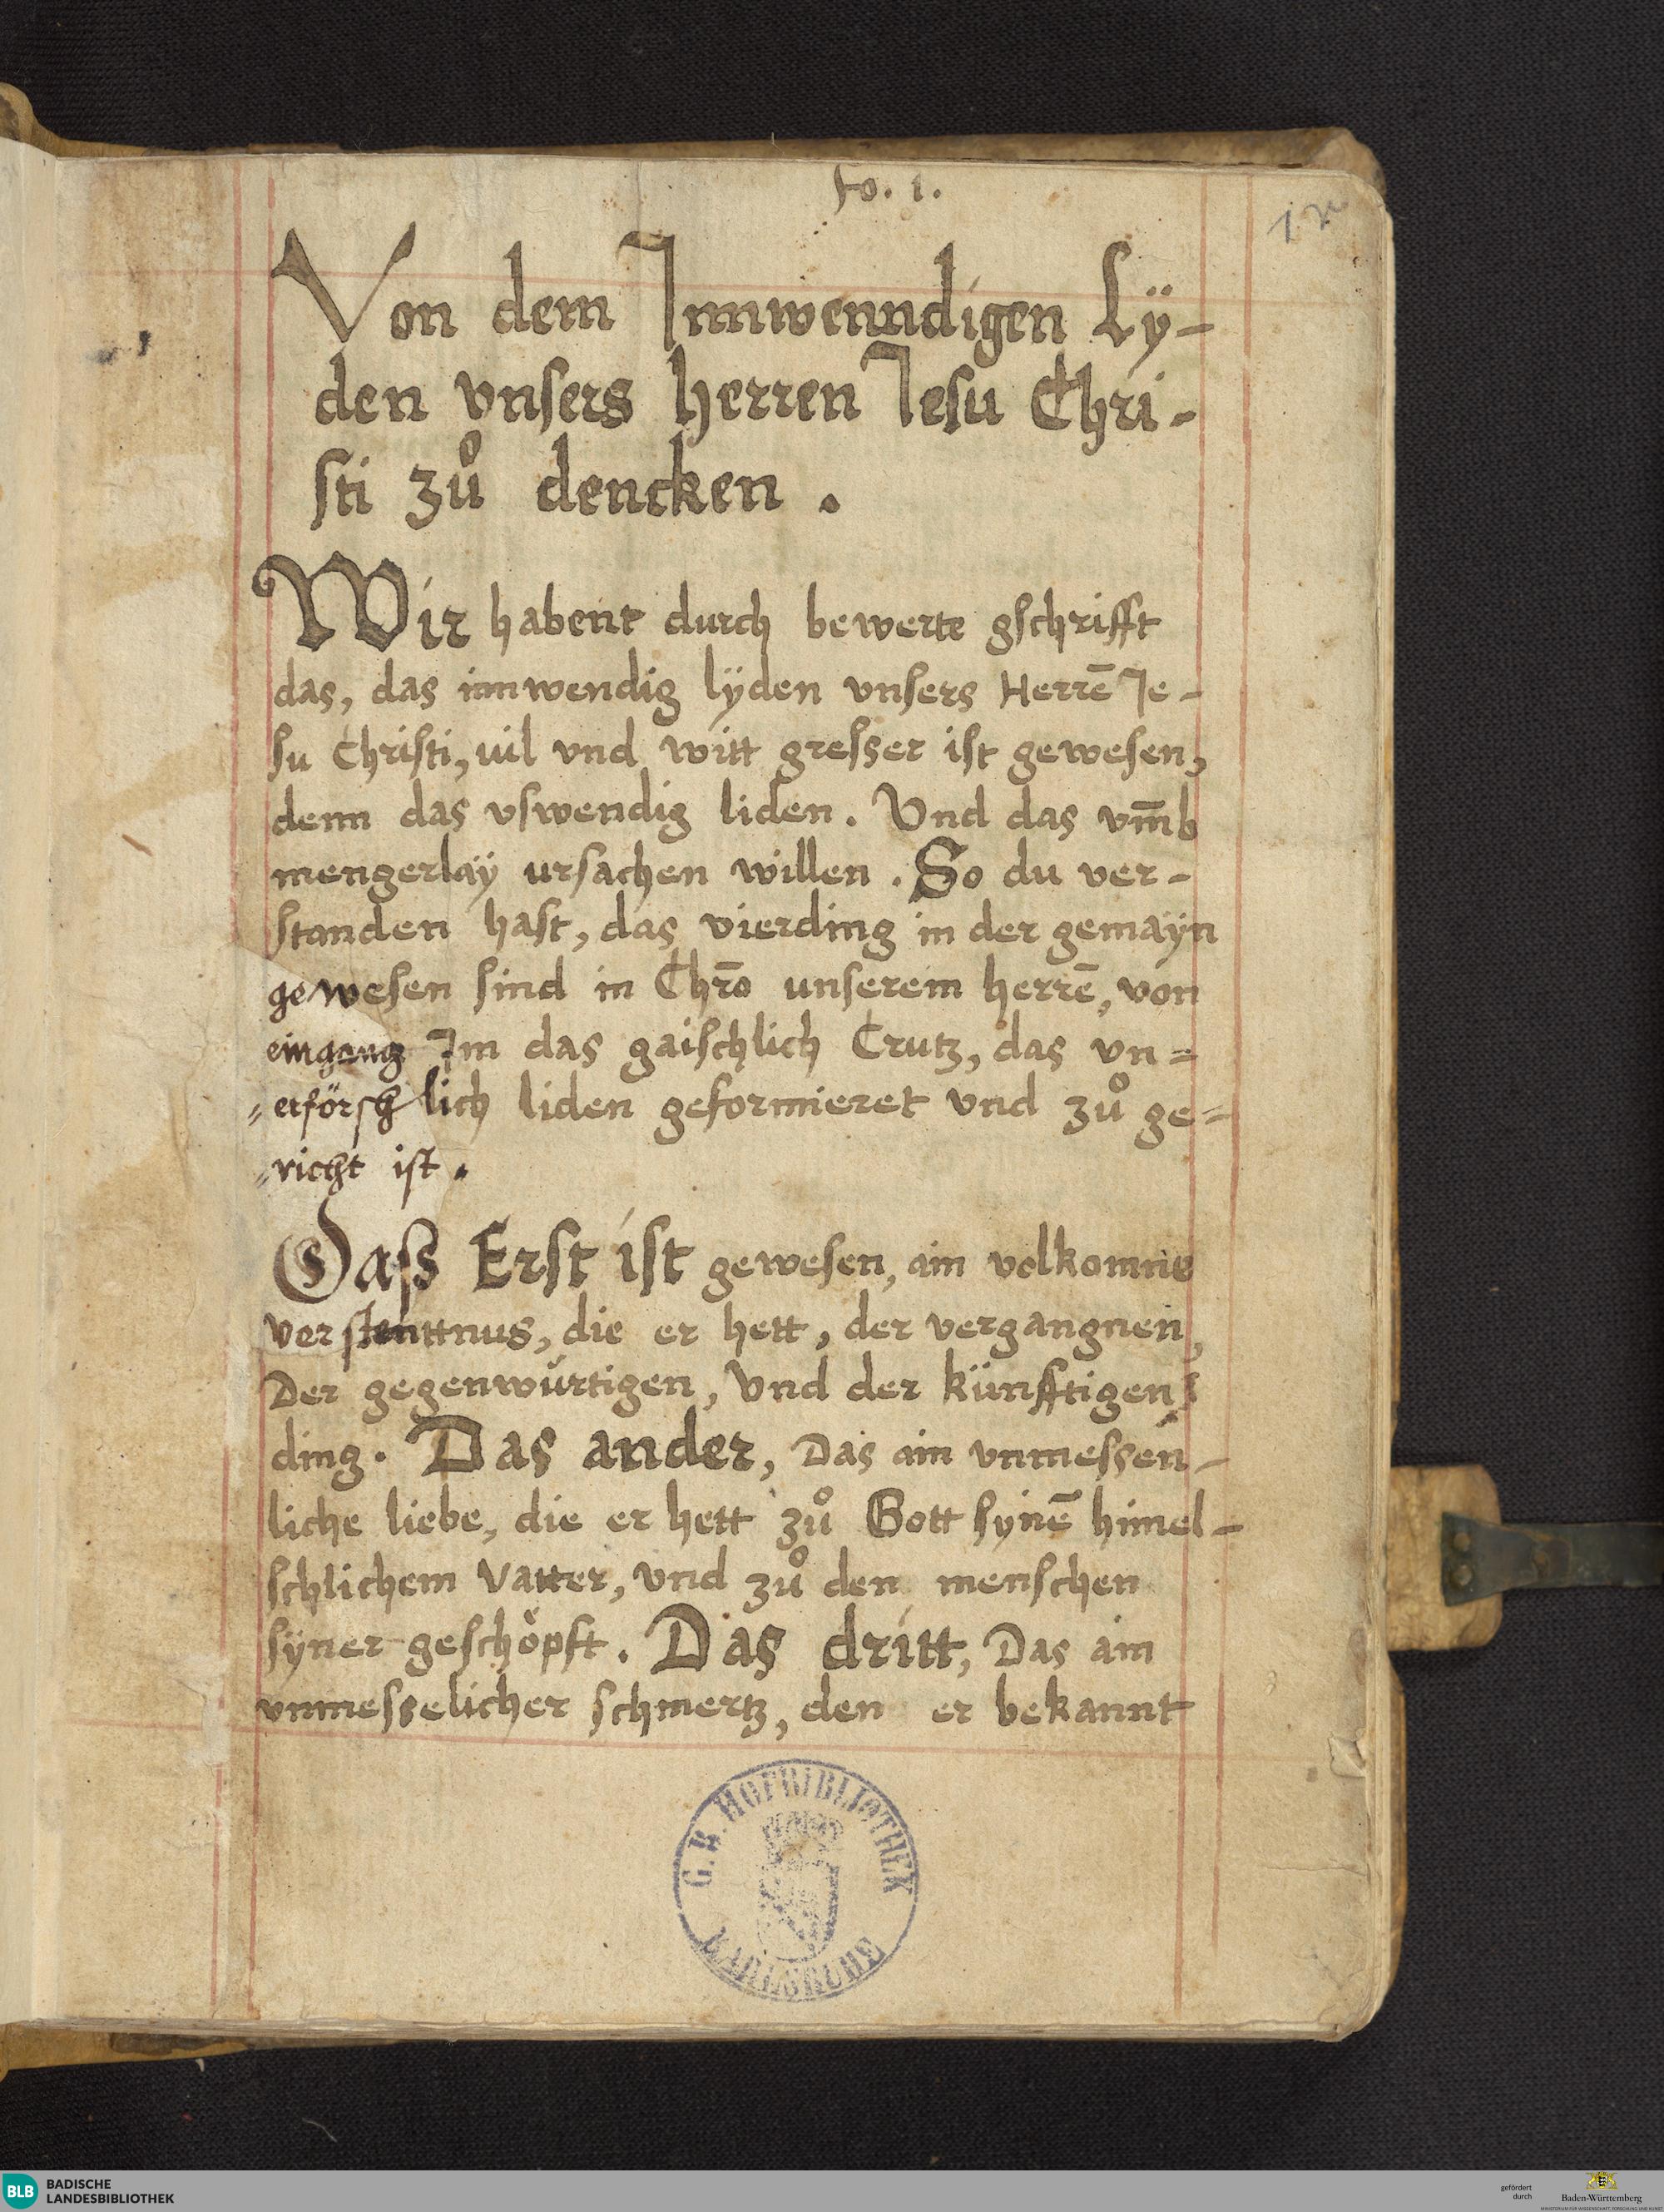 fo. 1.
1r
Von dem Innwenndigen Lÿ-
den vnsers herren Jesu Chri-
sti zů dencken.
Wir habent durch bewerte gschrifft
das, das innwendig lÿden vnsers Herrē Je-
su Christi, uil vnd witt gresser ist gewesen,
denn das vswendig liden. Und das vm̄b
mengerlaÿ ursachen willen. So du ver-
standen hast, das vierding in der gemaÿn
gewesen sind in Chr̄o unserem herrē, von
eingang Im das gaischlich Crutz, das vn=
„erförschlich liden geformieret vnd zů ge=
„richt ist.
Dass Erst ist gewesen, ain volkomne
verstenttnus, die er hett, der vergangnen,
Der gegenwürtigen, Vnd der künfftigen
ding. Das ander, Das ain vnmessen-
liche liebe, die er hett zů Gott synē himel-
schlichem Vatter, vnd zů den menschen
sÿner geschöpft. Das dritt, Das ain
vnmesselicher schmertz, den er bekannt
G. B. HOFBIBLIOTHEK
KARLSRUHE
BLB BADISCHE
LANDESBIBLIOTHEK
gefördert
durch
Baden-Württemberg
MINISTERIUM FÜR WISSENSCHAFT, FORSCHUNG UND KUNST